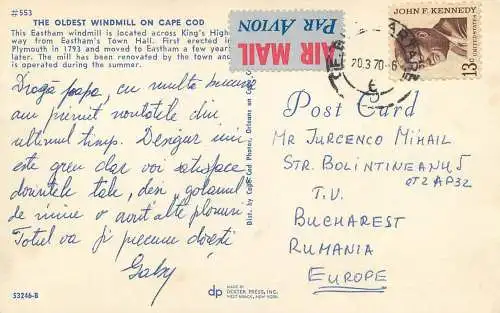 #553
THE OLDEST WINDMILL ON CAPE COD
This Eastham windmill is located across King's High
way from Eastham's Town Hall. First erected i
Plymouth in 1793 and moved to Eastham a few years
later. The mill has been renovated by the town and
is operated during the summer.
AIR MAIL
PAR AVION
JOHN F. KENNEDY
UNITED STATES
13c
20.3.70-6
Draga papa, cu multa bucurie
am primit noutatile din
ultimul timp. Desigur imi
este greu dar voi satisface
dorintele tale, deri golanul
de mine o avut alte planuri
Totul va fi precum doresti
Gaby
Dist. by Cape Cod Photos, Orleans
Post Card
MR JURCENCO MIHAIL
STR. BOLINTINEANU, 5
ET2 AP32
T.V.
BUCHAREST
RUMANIA
EUROPE
53246-B
dp
MADE BY
DEXTER PRESS, INC.
WEST NYACK, NEW YORK